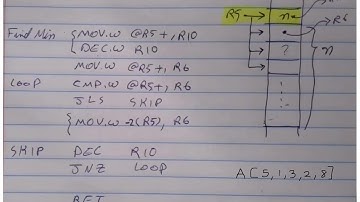 R5 → n
R6
Find Min { MOV.W @R5+, R10
{ DEC.W R10
?
n
MOV.W @R5+, R6
LOOP CMP.W @R5+, R6
JLS SKIP
{ MOV.W -2(R5), R6
SKIP DEC R10
JNZ LOOP
A[5,1,3,2,8]
RET